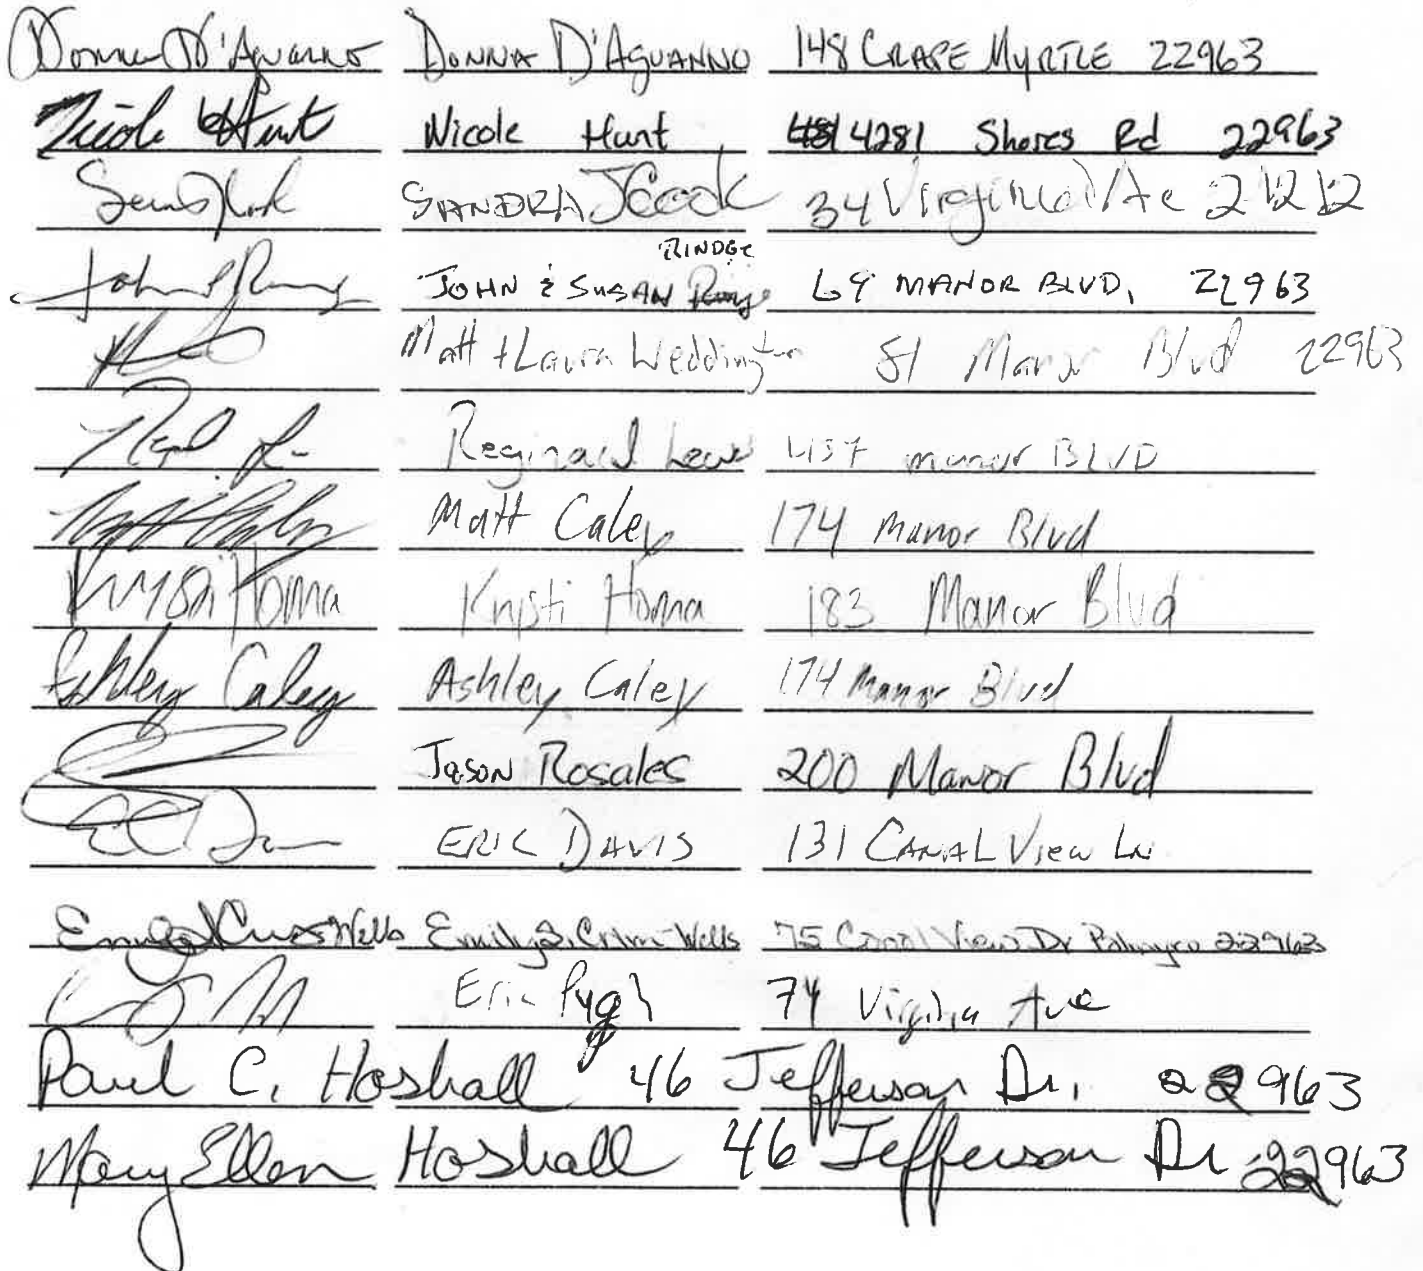 Donna D'Aguanno DONNA D'AGUANNO 148 CRAPE MYRTLE 22963
Nicole Hunt Nicole Hunt 4281 Shores Rd 22963
SANDRA J Cook 34 Virginia
RINDGE
JOHN & SUSAN 69 MANOR BLVD, 22963
Matt + Laura Weddington 81 Manor Blvd 22963
Reginald Lewis 437 manor BLVD
Matt Caley 174 Manor Blvd
Kristi Homa Kristi Homa 183 Manor Blvd
Ashley Caley Ashley Caley 174 Manor Blvd
Jason Rosales 200 Manor Blvd
ERIC DAVIS 131 CANAL VIEW LN
Wells Emily Wells 75 Canal View Dr Palmyra 22963
Eric Pugh 74 Virginia Ave
Paul C. Hoshall 46 Jefferson Dr. 22963
Mary Ellen Hoshall 46 Jefferson Dr 22963